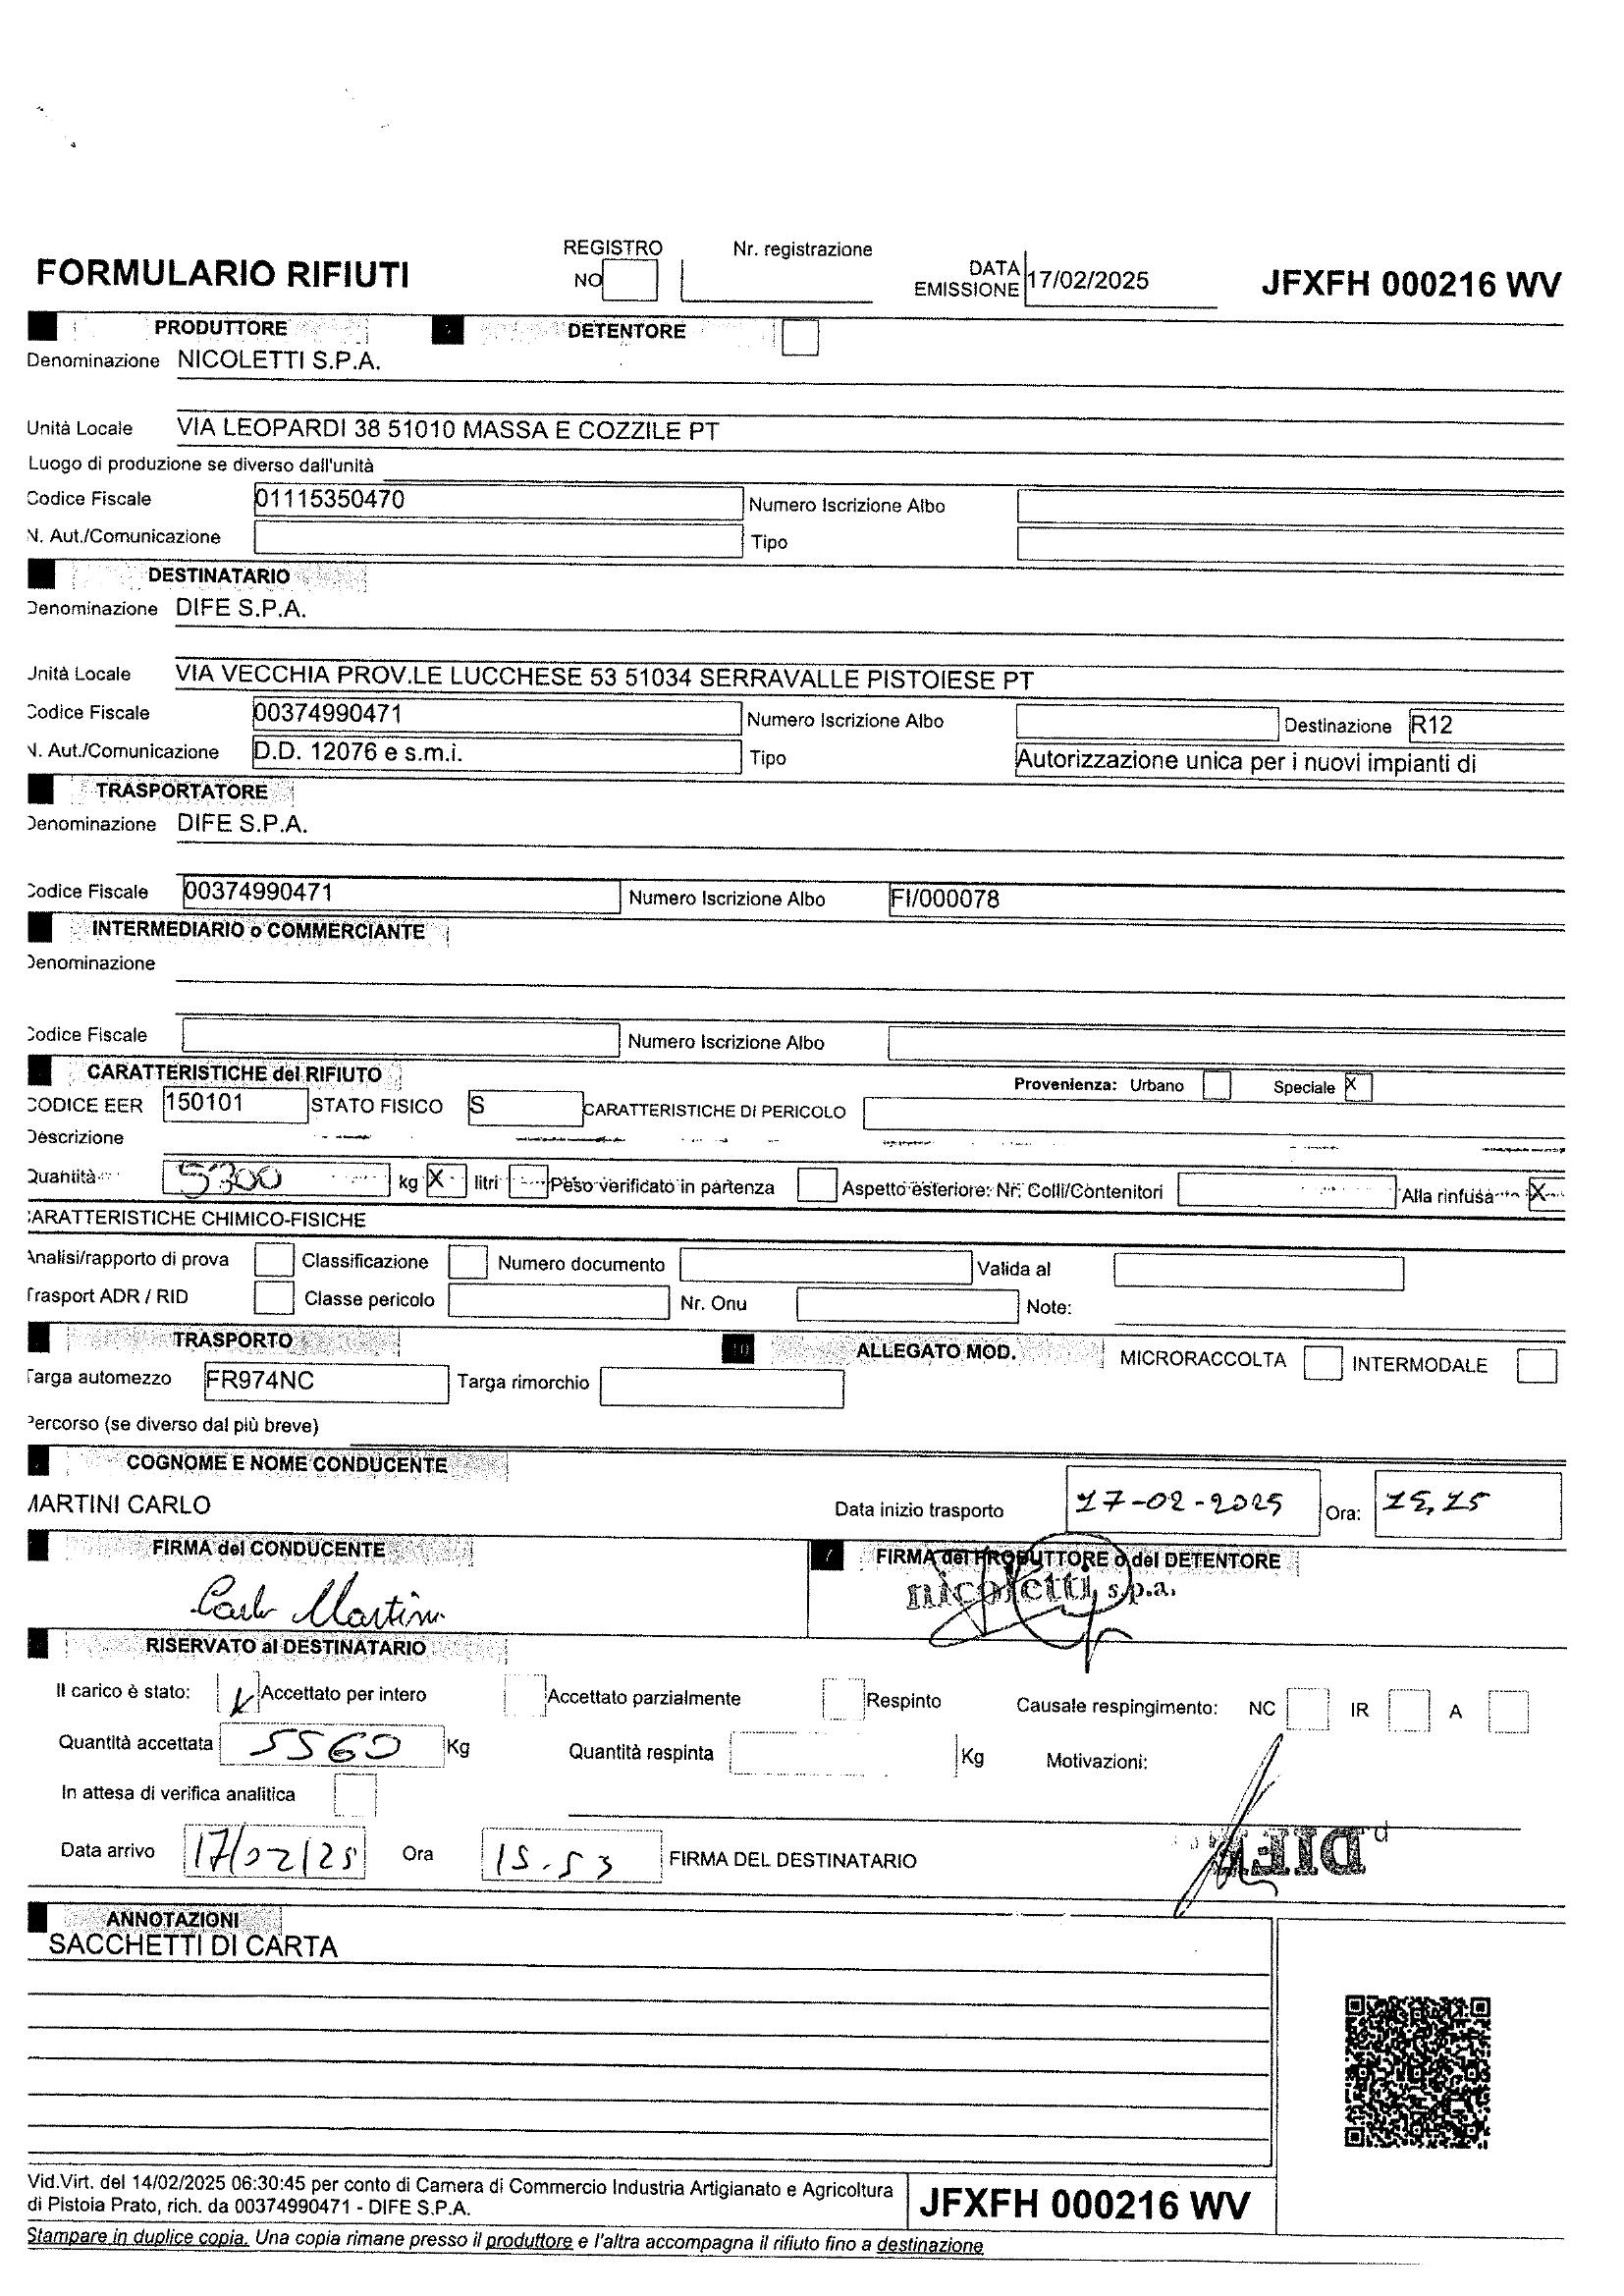 REGISTRO Nr. registrazione
FORMULARIO RIFIUTI NO DATA EMISSIONE 17/02/2025 JFXFH 000216 WV
PRODUTTORE DETENTORE
Denominazione NICOLETTI S.P.A.
Unità Locale VIA LEOPARDI 38 51010 MASSA E COZZILE PT
Luogo di produzione se diverso dall'unità
Codice Fiscale 01115350470 Numero Iscrizione Albo
N. Aut./Comunicazione Tipo
DESTINATARIO
Denominazione DIFE S.P.A.
Unità Locale VIA VECCHIA PROV.LE LUCCHESE 53 51034 SERRAVALLE PISTOIESE PT
Codice Fiscale 00374990471 Numero Iscrizione Albo Destinazione R12
N. Aut./Comunicazione D.D. 12076 e s.m.i. Tipo Autorizzazione unica per i nuovi impianti di
TRASPORTATORE
Denominazione DIFE S.P.A.
Codice Fiscale 00374990471 Numero Iscrizione Albo FI/000078
INTERMEDIARIO o COMMERCIANTE
Denominazione
Codice Fiscale Numero Iscrizione Albo
CARATTERISTICHE del RIFIUTO Provenienza: Urbano Speciale X
CODICE EER 150101 STATO FISICO S CARATTERISTICHE DI PERICOLO
Descrizione
Quantità 5300 kg X litri Peso verificato in partenza Aspetto esteriore: Nr. Colli/Contenitori Alla rinfusa X
CARATTERISTICHE CHIMICO-FISICHE
Analisi/rapporto di prova Classificazione Numero documento Valida al
Trasport ADR / RID Classe pericolo Nr. Onu Note:
TRASPORTO 10 ALLEGATO MOD. MICRORACCOLTA INTERMODALE
Targa automezzo FR974NC Targa rimorchio
Percorso (se diverso dal più breve)
COGNOME E NOME CONDUCENTE
MARTINI CARLO Data inizio trasporto 17-02-2025 Ora: 15,15
FIRMA del CONDUCENTE 7 FIRMA del PRODUTTORE o del DETENTORE
Carlo Martini nicoletti s.p.a.
RISERVATO al DESTINATARIO
Il carico è stato: X Accettato per intero Accettato parzialmente Respinto Causale respingimento: NC IR A
Quantità accettata 5560 Kg Quantità respinta Kg Motivazioni:
In attesa di verifica analitica
Data arrivo 17/02/25 Ora 15.53 FIRMA DEL DESTINATARIO DIFE
ANNOTAZIONI
SACCHETTI DI CARTA
Vid.Virt. del 14/02/2025 06:30:45 per conto di Camera di Commercio Industria Artigianato e Agricoltura
di Pistoia Prato, rich. da 00374990471 - DIFE S.P.A. JFXFH 000216 WV
Stampare in duplice copia. Una copia rimane presso il produttore e l'altra accompagna il rifiuto fino a destinazione